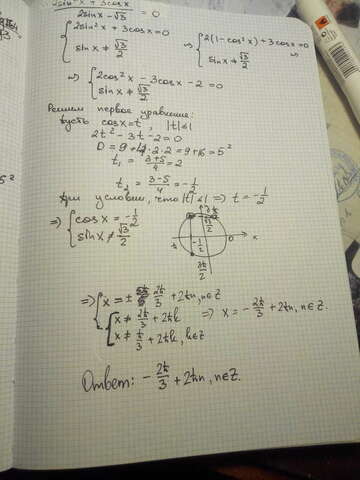 2sin²x + 3cosx
2sinx − √3 = 0
{ 2sin²x + 3cosx = 0 ⇒ { 2(1 − cos²x) + 3cosx = 0 ⇒
sinx ≠ √3/2 sinx ≠ √3/2
⇒ { 2cos²x − 3cosx − 2 = 0
sinx ≠ √3/2
Решим первое уравнение:
пусть cosx = t, |t| ≤ 1
2t² − 3t − 2 = 0
D = 9 + 4·2·2 = 9 + 16 = 5²
t₁ = 3+5/4 = 2
t₂ = 3−5/4 = −1/2
При условии, что |t| ≤ 1 ⇒ t = −1/2
⇒ { cosx = −1/2
sinx ≠ √3/2
−1/2 0 x
3π/2
⇒ { x = ± 2π/3 + 2πn, n∈Z
{ x ≠ 2π/3 + 2πk ⇒ x = −2π/3 + 2πn, n∈Z.
x ≠ π/3 + 2πk, k∈Z
Ответ: −2π/3 + 2πn, n∈Z.